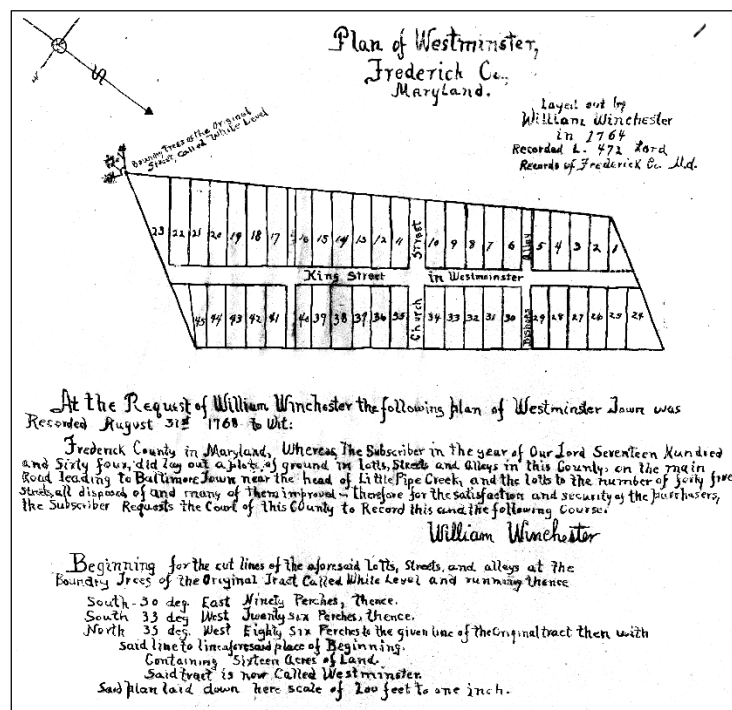 Plan of Westminster,
Frederick Co.,
Maryland.
Layed out by
William Winchester
in 1764
Recorded L. 472 Lord
Records of Frederick Co. Md.
S
Boundry Trees of the Original
Street, Called White Level
23 22 21 20 19 18 17 16 15 14 13 12 11 Street 10 9 8 7 6 Alley 5 4 3 2 1
King Street in Westminster
45 44 43 42 41 40 39 38 37 36 35 Church 34 33 32 31 30 Bishops 29 28 27 26 25 24
At the Request of William Winchester the following plan of Westminster Town was
Recorded August 31st 1768 to Wit:
Frederick County in Maryland, Whereas, The Subscriber in the year of Our Lord Seventeen Hundred
and Sixty four, did lay out a plot of ground in lotts, Streets and Alleys in this County, on the main
Road leading to Baltimore Town near the head of Little Pipe Creek, and the lotts to the number of forty five
Streets, all disposed of and many of them improved - therefore for the satisfaction and security of the purchasers,
the Subscriber Requests the Court of this County to Record this and the following Course:
William Winchester
Beginning for the out lines of the aforesaid Lotts, Streets, and alleys at the
Boundry Trees of the Original Tract Called White Level and running thence
South - 30 deg East Ninety Perches, thence.
South 33 deg West Twenty six Perches, thence.
North 35 deg. West Eighty Six Perches to the given line of the Original tract then with
said line to line aforesaid place of Beginning.
Containing Sixteen Acres of Land.
Said tract is now Called Westminster.
Said plan laid down here scale of 200 feet to one inch.